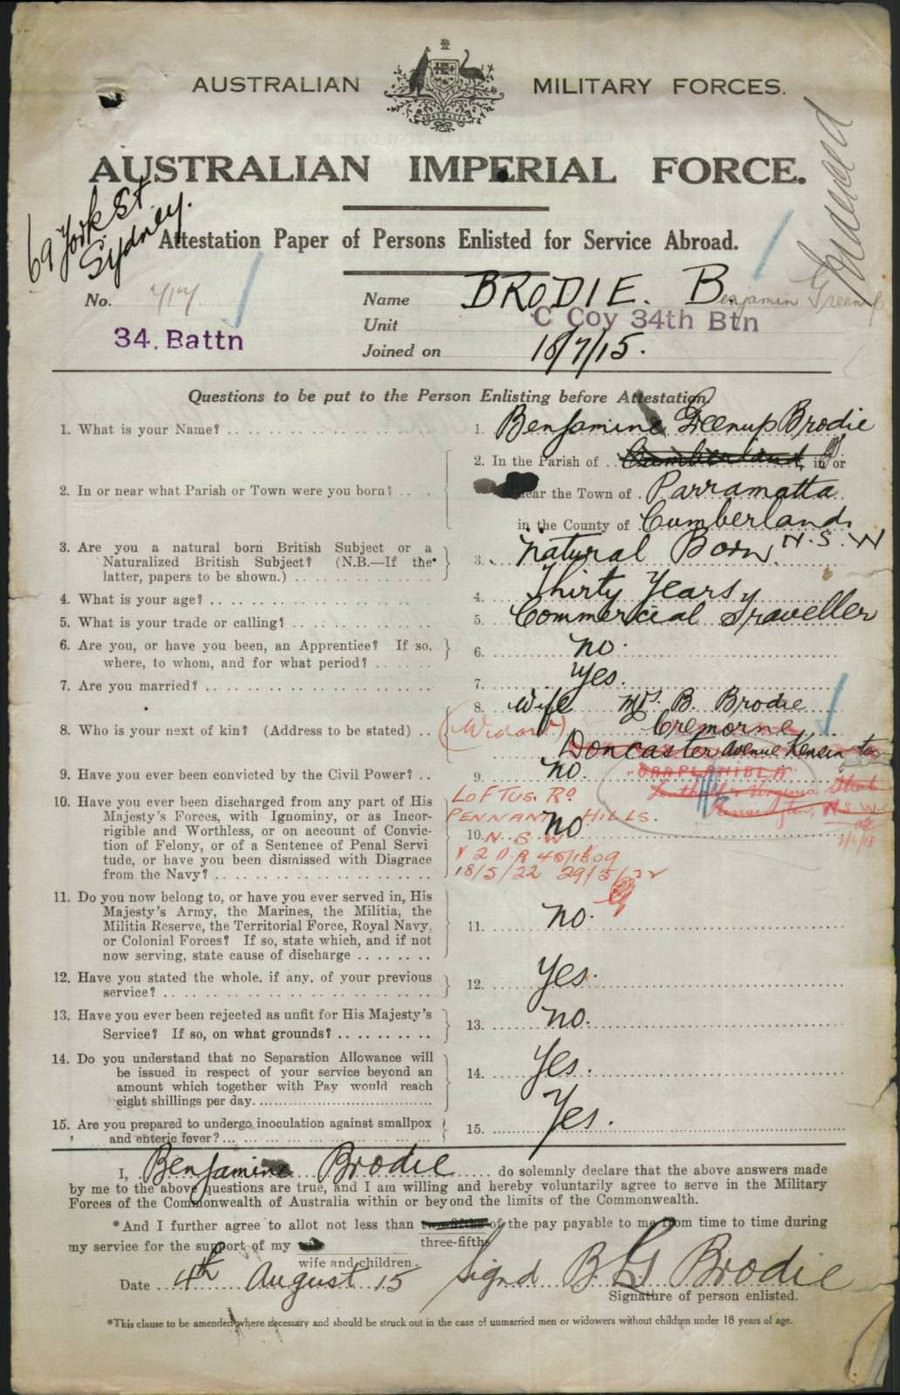 AUSTRALIAN MILITARY FORCES.
AUSTRALIAN IMPERIAL FORCE.
69 York St.
Sydney.
Indexed
Attestation Paper of Persons Enlisted for Service Abroad.
No. 717 Name BRODIE. B. enjamin Greenup
34. Battn Unit C Coy 34th Btn
Joined on 18/7/15.
Questions to be put to the Person Enlisting before Attestation.
1. What is your Name? 1. Benjamine Greenup Brodie
2. In or near what Parish or Town were you born? 2. In the Parish of Cumberland, in or
near the Town of Parramatta
in the County of Cumberland
3. Are you a natural born British Subject or a Naturalized British Subject? (N.B.—If the latter, papers to be shown.) 3. Natural Born N.S.W
4. What is your age? 4. Thirty Years
5. What is your trade or calling? 5. Commercial Traveller
6. Are you, or have you been, an Apprentice? If so, where, to whom, and for what period? 6. no.
7. Are you married? 7. Yes.
8. Who is your next of kin? (Address to be stated) 8. Wife Mrs. B. Brodie
(Widow) Cremorne
Doncaster Avenue Kensin ton
9. Have you ever been convicted by the Civil Power? 9. no
LOFTUS. RD
PENNANT HILLS.
N. S. W
18/5/22
10. Have you ever been discharged from any part of His Majesty's Forces, with Ignominy, or as Incorrigible and Worthless, or on account of Conviction of Felony, or of a Sentence of Penal Servi tude, or have you been dismissed with Disgrace from the Navy? 10. no
11. Do you now belong to, or have you ever served in, His Majesty's Army, the Marines, the Militia, the Militia Reserve, the Territorial Force, Royal Navy, or Colonial Forces? If so, state which, and if not now serving, state cause of discharge 11. no.
12. Have you stated the whole, if any, of your previous service? 12. Yes.
13. Have you ever been rejected as unfit for His Majesty's Service? If so, on what grounds? 13. no.
14. Do you understand that no Separation Allowance will be issued in respect of your service beyond an amount which together with Pay would reach eight shillings per day. 14. Yes.
15. Are you prepared to undergo inoculation against smallpox and enteric fever? 15. Yes.
I, Benjamine Brodie do solemnly declare that the above answers made
by me to the above questions are true, and I am willing and hereby voluntarily agree to serve in the Military
Forces of the Commonwealth of Australia within or beyond the limits of the Commonwealth.
*And I further agree to allot not less than two-fifths of the pay payable to me from time to time during
three-fifths
my service for the support of my
wife and children.
Date 4th August 15 Signd B G Brodie
Signature of person enlisted.
*This clause to be amended where necessary and should be struck out in the case of unmarried men or widowers without children under 18 years of age.